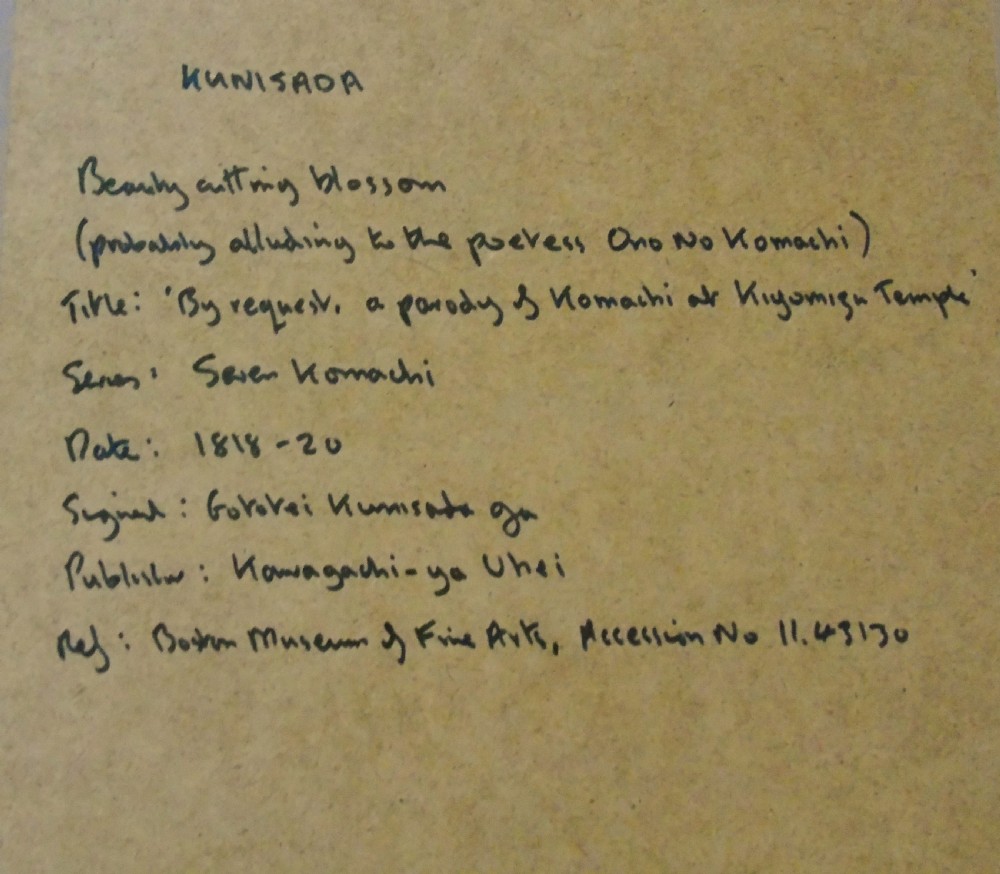 KUNISADA
Beauty cutting blossom
(probably alluding to the poetess Ono No Komachi)
Title: 'By request, a parody of Komachi at Kiyomizu Temple'
Series: Seven Komachi
Date: 1818-20
Signed: Gototei Kunisada ga
Publisher: Kawagachi-ya Uhei
Ref: Boston Museum of Fine Arts, Accession No 11.43130